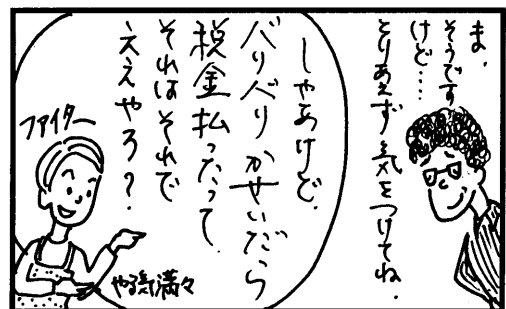 ま、
そうです
けど……
とりあえず気をつけてね.
しゃあけど、
バリバリかせいだら
税金払ったって、
それはそれで
ええやろ?
ファイター
やる気満々